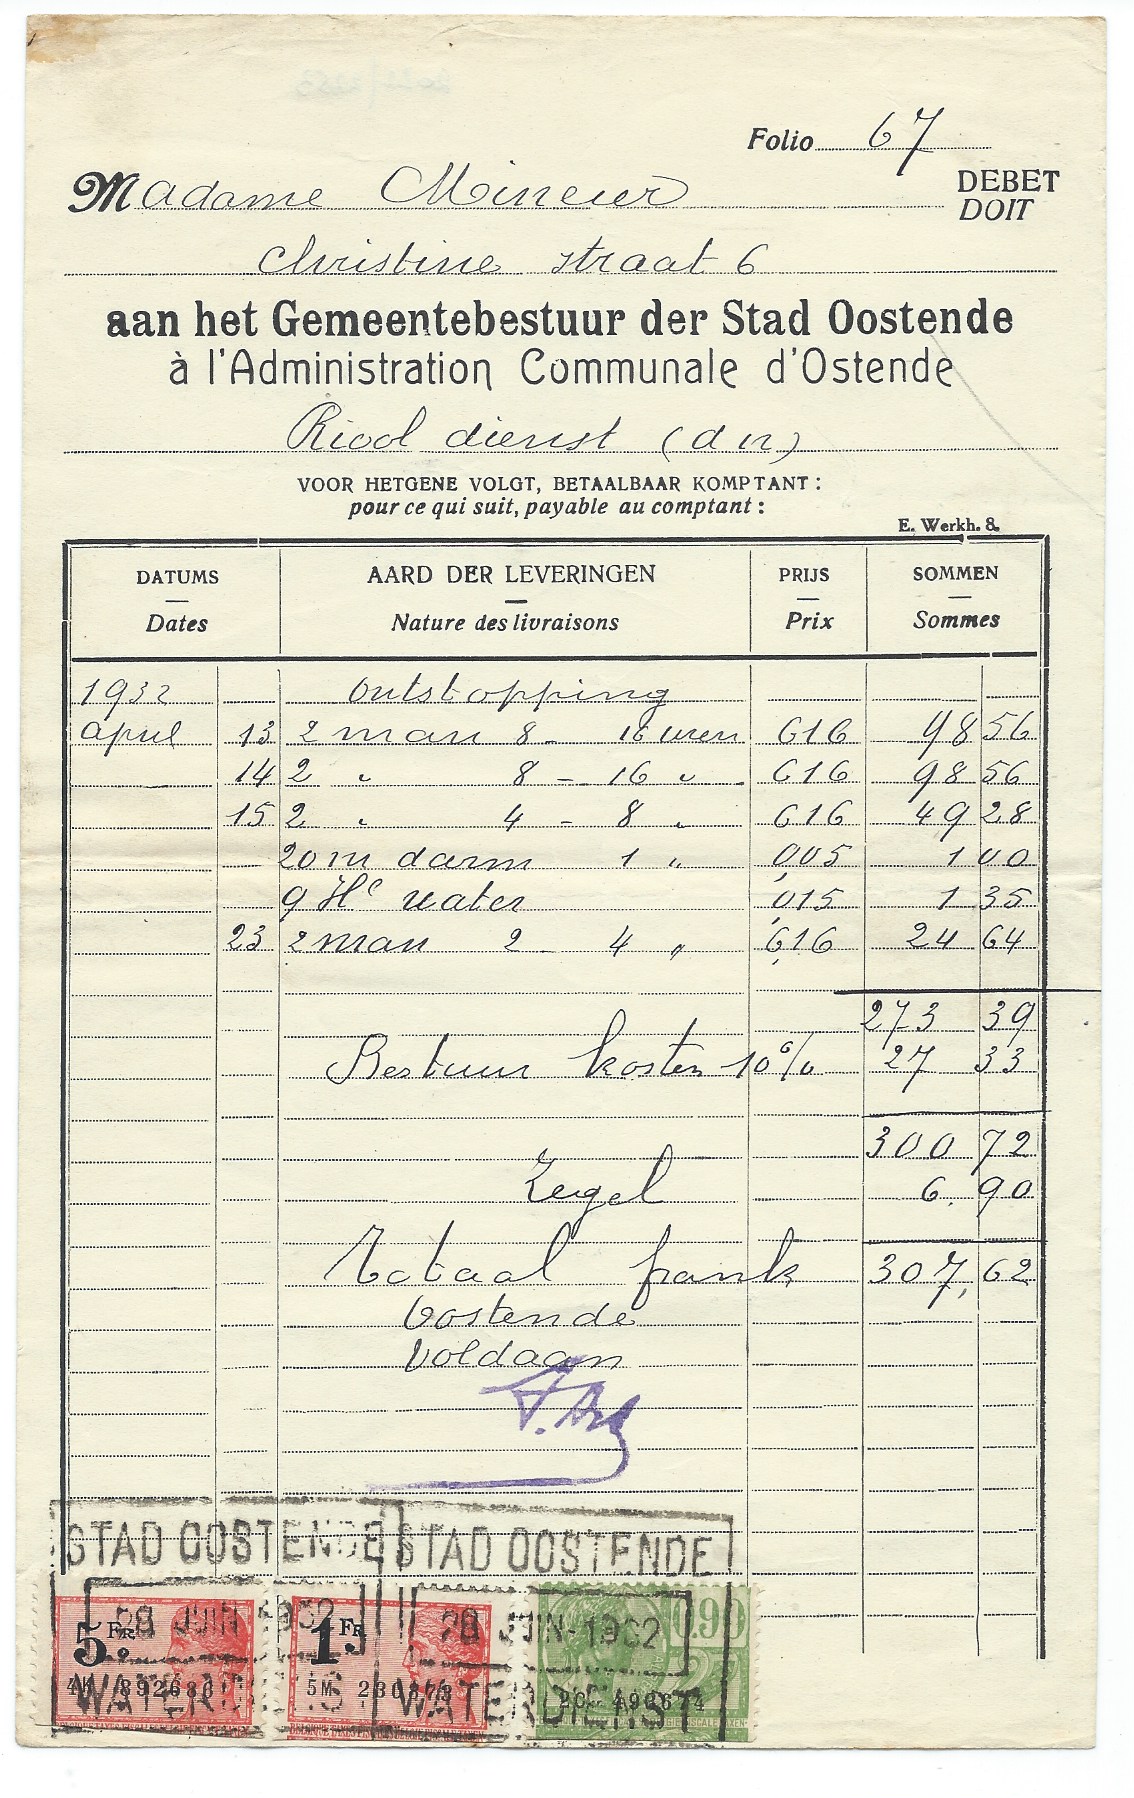 Folio 67
Madame Mineur
DEBET
DOIT
Christine straat 6
aan het Gemeentebestuur der Stad Oostende
à l'Administration Communale d'Ostende
Riool dienst (dn)
VOOR HETGENE VOLGT, BETAALBAAR KOMPTANT :
pour ce qui suit, payable au comptant :
E. Werkh. 8.
DATUMS AARD DER LEVERINGEN PRIJS SOMMEN
Dates Nature des livraisons Prix Sommes
1932 Ontstopping
april 13 2 man 8 - 16 uren 616 98 56
14 2 " 8 - 16 " 616 98 56
15 2 " 4 - 8 " 616 49 28
20 m darm 1 " 0,05 1 00
9 Hl water ,015 1 35
23 2 man 2 - 4 " 6,16 24 64
273 39
Bestuur kosten 10% 27 33
300 72
Zegel 6.90
Totaal frank 307,62
Oostende
Voldaan
STAD OOSTENDE STAD OOSTENDE
28 JUIN 1932 28 JUIN-1932
5 Fr. 1 Fr. 0.90
5M 230878
WATERDIENST WATERDIENST